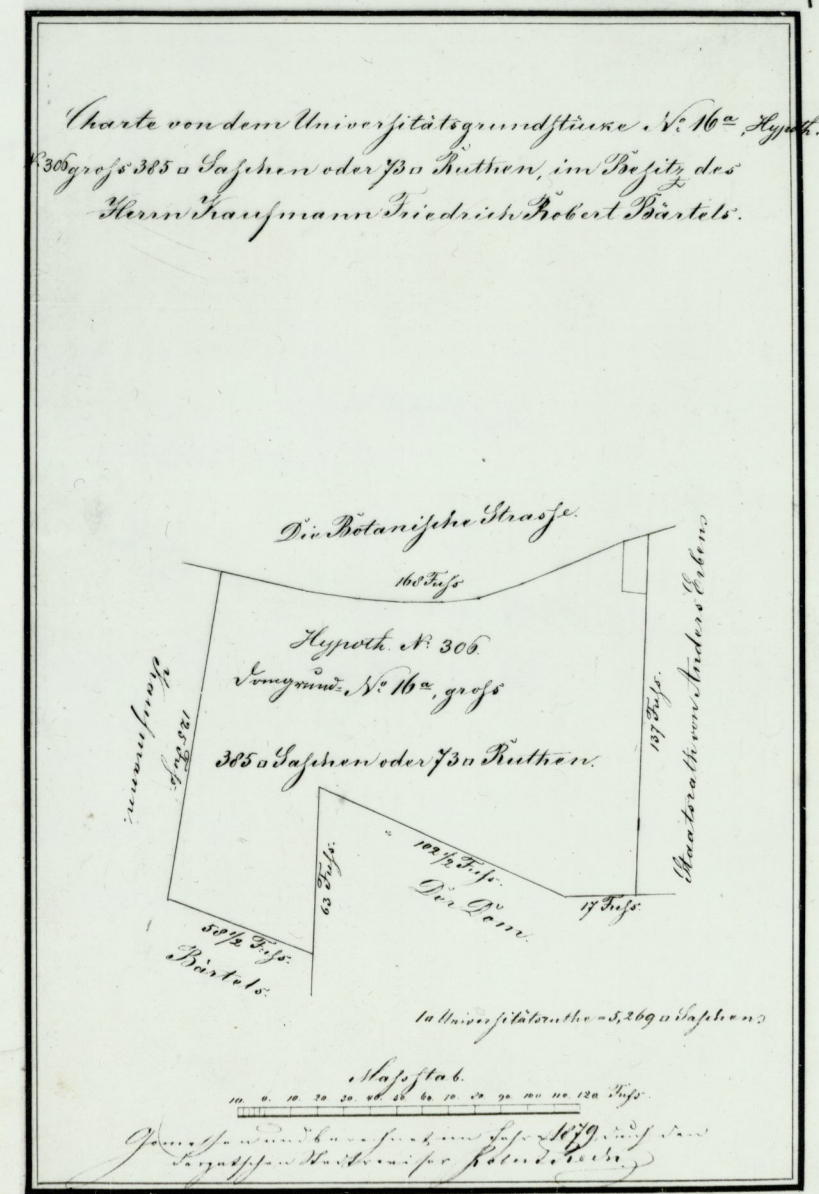 Charte von dem Universitätsgrundstücke № 16a, Hypoth.
№ 306 gross 385 □ Saschen oder 73 □ Ruthen, im Besitz des
Herrn Kaufmann Friedrich Robert Bärtels.
Die Botanische Strasse.
168 Fuss
Hypoth. № 306.
Domgrund- № 16a, gross
385 □ Saschen oder 73 □ Ruthen.
Kaufmann
125 Fuss.
137 Fuss.
Staatsrath von Anders Erben
63 Fuss.
102 1/2 Fuss.
Der Dom.
17 Fuss.
58 1/2 Fuss.
Bärtels.
1 □ Universitätsruthe = 5,269 □ Saschen
Massstab.
10. 0. 10. 20. 30. 40. 50. 60. 70. 80. 90. 100. 110. 120 Fuss.
Gemessen und berechnet im Jahre 1879 durch den
dorpatschen Stadtrevisor